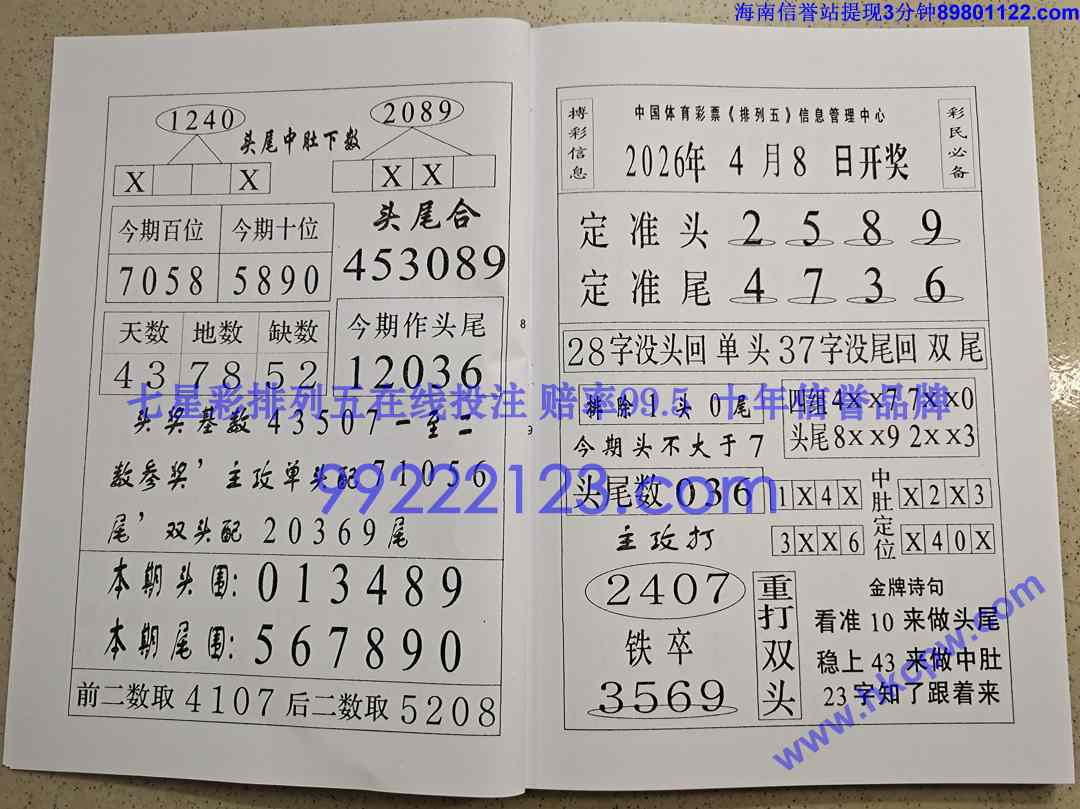 海南信誉站提现3分钟89801122.com
1240
2089
头尾中肚下数
X X
X X
今期百位 今期十位
7058 5890
头尾合
453089
天数 地数 缺数
43 78 52
今期作头尾
12036
头奖基数43507一至二
数参奖，主攻单头配71056
尾，双头配20369尾
本期头围:013489
本期尾围:567890
前二数取4107后二数取5208
8
9
搏彩信息
中国体育彩票《排列五》信息管理中心
2026年4月8日开奖
彩民必备
定准头2589
定准尾4736
28字没头回单头37字没尾回双尾
排除1头0尾
今期头不大于7
四组4××7 7××0
头尾8××9 2××3
头尾数036
主攻打
1X4X
3XX6
中肚定位
X2X3
X40X
2407
铁卒
3569
重打双头
金牌诗句
看准10来做头尾
稳上43来做中肚
23字知了跟着来
七星彩排列五在线投注 赔率99.5 十年信誉品牌
99222123.com
www.hkcpw.com